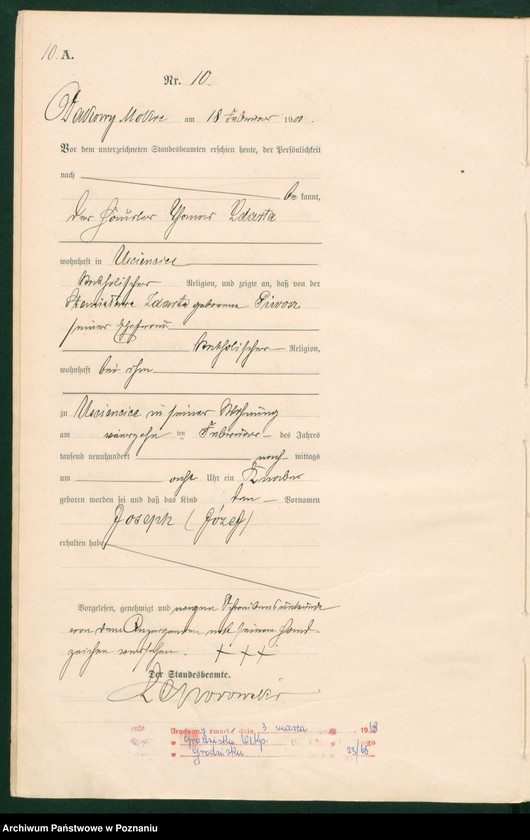 10. A.
Nr. 10.
Dakowy Mokre am 18 Februar 190
Vor dem unterzeichneten Standesbeamten erschien heute, der Persönlichkeit
nach
be kannt,
der Häusler Thomas Zdarta
wohnhaft in Usciencice
katholischer Religion, und zeigte an, daß von der
Zdarta geborene
seiner Ehefrau
katholischer Religion,
wohnhaft bei ihm
zu Usciencice in seiner Wohnung
am vierzehn ten Februar des Jahres
tausend neunhundert nach mittags
um acht Uhr ein Knabe
geboren worden sei und daß das Kind den Vornamen
Joseph (Józef)
erhalten habe
Vorgelesen, genehmigt und wegen Schreibensunkunde
von dem Anzeigenden mit seinem Hand-
zeichen versehen. + + +
Der Standesbeamte.
3 marca 1968
Grodzisku Wlkp.
Grodzisku 23/68
Archiwum Państwowe w Poznaniu